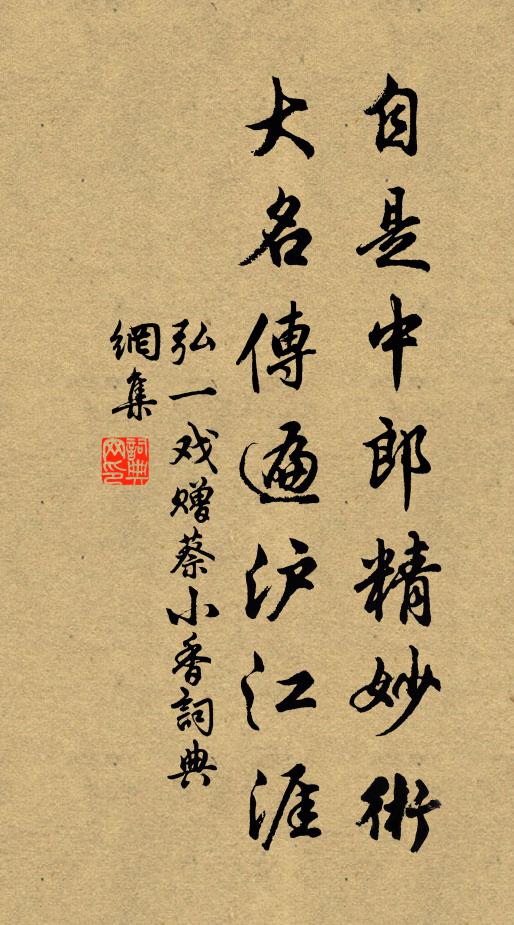 自是中郎精妙術
大名傳遍沪江涯
弘一戏赠蔡小香詞典
網集
詞典網印